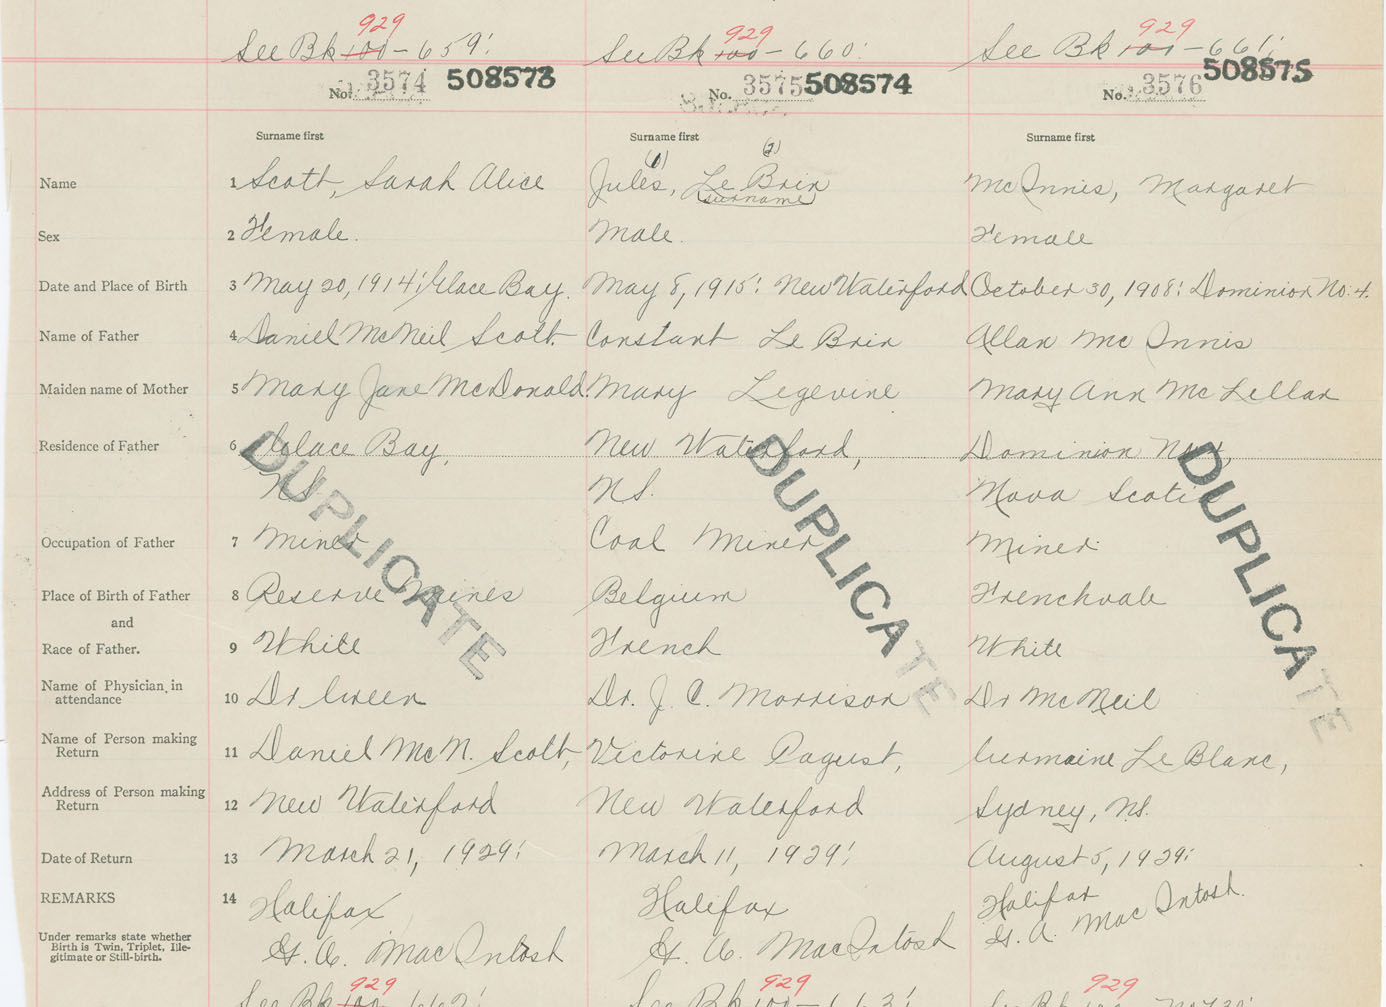 929 929 929
See Bk 100 - 659: See Bk 100 - 660: See Bk 101 - 661:
No. 3574 508573 No. 3575 508574 No. 3576 508575
Surname first Surname first Surname first
(1) (2)
Name 1 Scott, Sarah Alice Jules, Le Brin McInnis, Margaret
(surname)
Sex 2 Female. Male. Female
Date and Place of Birth 3 May 20, 1914: Glace Bay. May 8, 1915: New Waterford October 30, 1908: Dominion No. 4.
Name of Father 4 Daniel McNeil Scott. Constant Le Brin Allan McInnis
Maiden name of Mother 5 Mary Jane McDonald. Mary Legevine Mary Ann McLellan
Residence of Father 6 Glace Bay, New Waterford, Dominion
NS N.S. Nova Scotia
Occupation of Father 7 Miner Coal Miner Miner
DUPLICATE DUPLICATE DUPLICATE
Place of Birth of Father 8 Reserve Mines Belgium Frenchvale
and
Race of Father. 9 White French White
Name of Physician in
attendance 10 Dr Green Dr. J. C. Morrison Dr McNeil
Name of Person making
Return 11 Daniel McN. Scott, Victorine Pagust, Germaine Le Blanc,
Address of Person making
Return 12 New Waterford New Waterford Sydney, N.S.
Date of Return 13 March 21, 1929: March 11, 1929: August 5, 1929:
REMARKS 14 Halifax Halifax Halifax
G. A. MacIntosh G. A. MacIntosh G. A. MacIntosh.
Under remarks state whether
Birth is Twin, Triplet, Ille-
gitimate or Still-birth.
929 929 929
See Bk 100 - 662: See Bk 100 - 663: See Bk